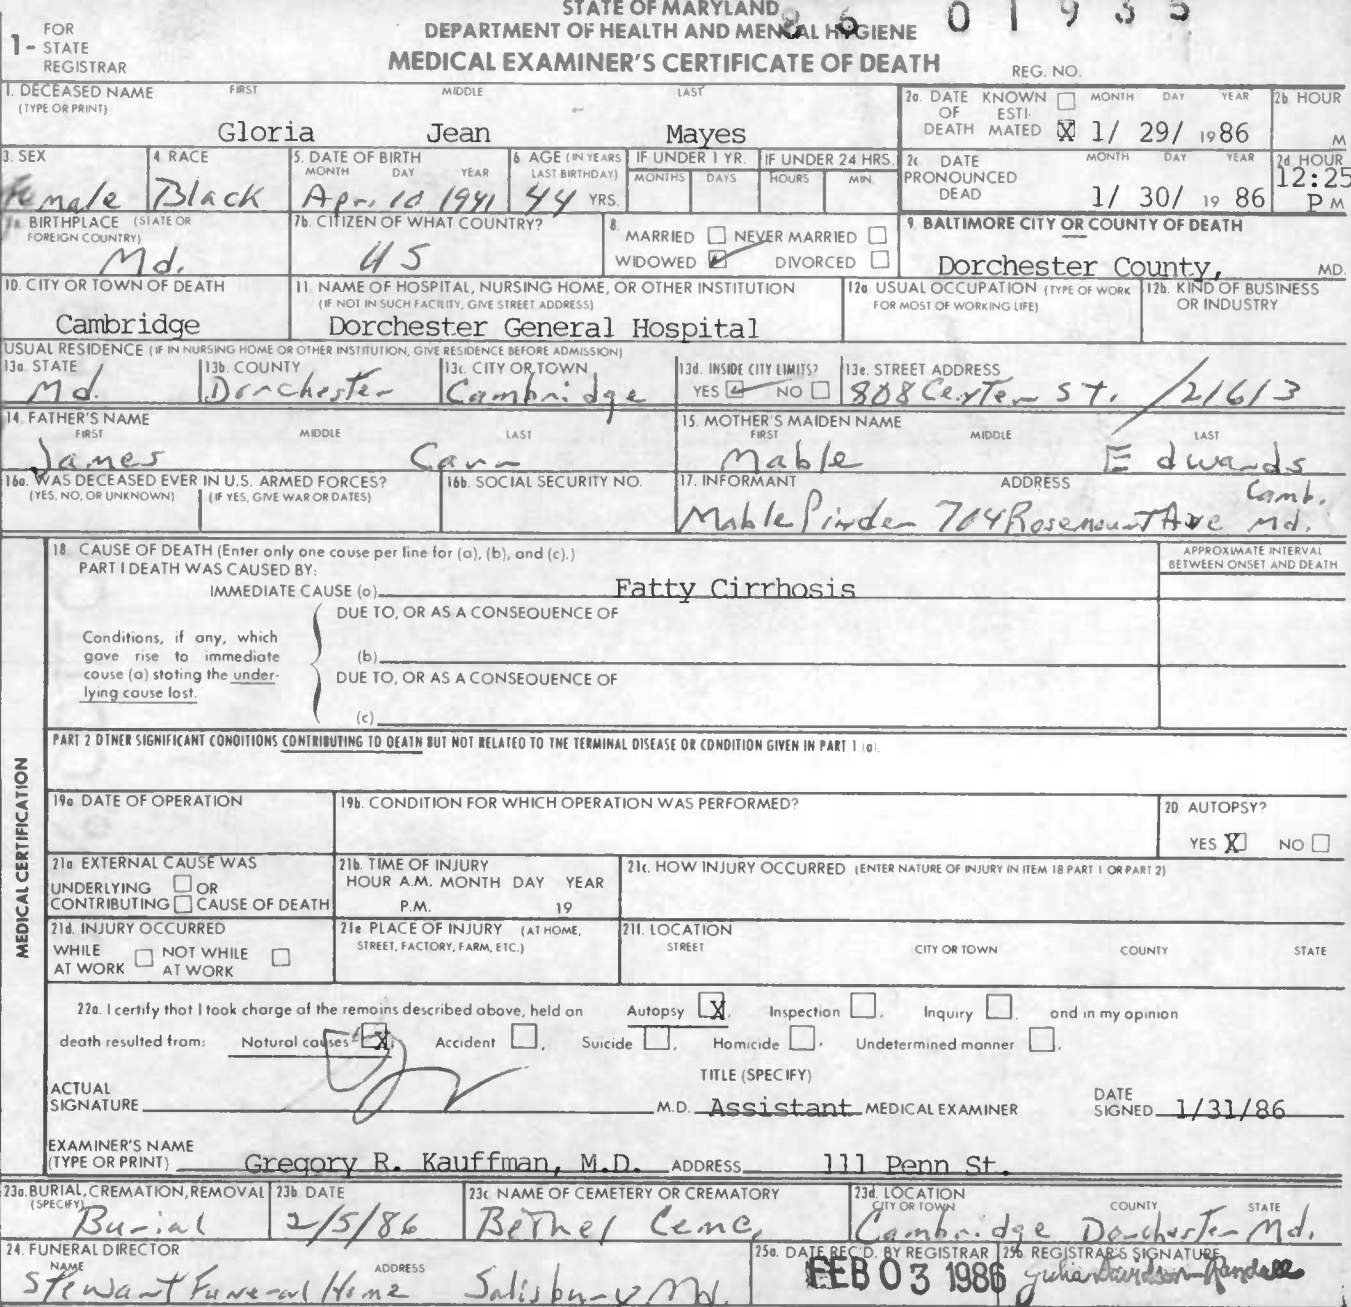 STATE OF MARYLAND
DEPARTMENT OF HEALTH AND MENTAL HYGIENE
MEDICAL EXAMINER'S CERTIFICATE OF DEATH
86 01935
1- FOR STATE REGISTRAR
REG. NO.
1. DECEASED NAME (TYPE OR PRINT) FIRST MIDDLE LAST
Gloria Jean Mayes
2a. DATE OF DEATH KNOWN ESTIMATED X MONTH DAY YEAR 1/ 29/ 1986
2b HOUR M
3. SEX Female
4. RACE Black
5. DATE OF BIRTH MONTH DAY YEAR Apr. 10 1941
6. AGE (IN YEARS LAST BIRTHDAY) 44 YRS.
IF UNDER 1 YR. MONTHS DAYS
IF UNDER 24 HRS. HOURS MIN.
2c DATE PRONOUNCED DEAD MONTH DAY YEAR 1/ 30/ 19 86
2d HOUR 12:25 P M
7a BIRTHPLACE (STATE OR FOREIGN COUNTRY) Md.
7b. CITIZEN OF WHAT COUNTRY? US
8. MARRIED NEVER MARRIED WIDOWED DIVORCED
9. BALTIMORE CITY OR COUNTY OF DEATH
Dorchester County, MD.
10. CITY OR TOWN OF DEATH Cambridge
11. NAME OF HOSPITAL, NURSING HOME, OR OTHER INSTITUTION (IF NOT IN SUCH FACILITY, GIVE STREET ADDRESS)
Dorchester General Hospital
12a. USUAL OCCUPATION (TYPE OF WORK FOR MOST OF WORKING LIFE)
12b. KIND OF BUSINESS OR INDUSTRY
USUAL RESIDENCE (IF IN NURSING HOME OR OTHER INSTITUTION, GIVE RESIDENCE BEFORE ADMISSION)
13a. STATE Md.
13b. COUNTY Dorchester
13c. CITY OR TOWN Cambridge
13d. INSIDE CITY LIMITS? YES NO
13e. STREET ADDRESS 808 Center St. /21613
14. FATHER'S NAME FIRST MIDDLE LAST
James Carr
15. MOTHER'S MAIDEN NAME FIRST MIDDLE LAST
Mable Edwards
16a. WAS DECEASED EVER IN U.S. ARMED FORCES? (YES, NO, OR UNKNOWN) (IF YES, GIVE WAR OR DATES)
16b. SOCIAL SECURITY NO.
17. INFORMANT ADDRESS
Mable Pinder 704 Rosemount Ave Camb. Md.
MEDICAL CERTIFICATION
18. CAUSE OF DEATH (Enter only one cause per line for (a), (b), and (c).)
APPROXIMATE INTERVAL BETWEEN ONSET AND DEATH
PART I DEATH WAS CAUSED BY:
IMMEDIATE CAUSE (a) Fatty Cirrhosis
DUE TO, OR AS A CONSEQUENCE OF
Conditions, if any, which gave rise to immediate cause (a) stating the underlying cause last.
(b)
DUE TO, OR AS A CONSEQUENCE OF
(c)
PART 2 OTHER SIGNIFICANT CONDITIONS CONTRIBUTING TO DEATH BUT NOT RELATED TO THE TERMINAL DISEASE OR CONDITION GIVEN IN PART 1 (a).
19a DATE OF OPERATION
19b. CONDITION FOR WHICH OPERATION WAS PERFORMED?
20 AUTOPSY? YES X NO
21a EXTERNAL CAUSE WAS
UNDERLYING OR
CONTRIBUTING CAUSE OF DEATH
21b. TIME OF INJURY
HOUR A.M. MONTH DAY YEAR
P.M. 19
21c. HOW INJURY OCCURRED (ENTER NATURE OF INJURY IN ITEM 18 PART 1 OR PART 2)
21d. INJURY OCCURRED
WHILE AT WORK NOT WHILE AT WORK
21e PLACE OF INJURY (AT HOME, STREET, FACTORY, FARM, ETC.)
21f. LOCATION STREET CITY OR TOWN COUNTY STATE
22a. I certify that I took charge of the remains described above, held an Autopsy X, Inspection , Inquiry . and in my opinion
death resulted from: Natural causes X, Accident , Suicide , Homicide , Undetermined manner .
ACTUAL SIGNATURE M.D.
TITLE (SPECIFY)
Assistant MEDICAL EXAMINER
DATE SIGNED 1/31/86
EXAMINER'S NAME (TYPE OR PRINT) Gregory R. Kauffman, M.D. ADDRESS 111 Penn St.
23a. BURIAL, CREMATION, REMOVAL (SPECIFY) Burial
23b DATE 2/5/86
23c NAME OF CEMETERY OR CREMATORY Bethel Ceme.
23d. LOCATION CITY OR TOWN COUNTY STATE
Cambridge Dorchester Md.
24. FUNERAL DIRECTOR NAME ADDRESS
Stewart Funeral Home Salisbury Md.
25a. DATE REC'D. BY REGISTRAR FEB 03 1986
25b REGISTRAR'S SIGNATURE Julia Davidson-Randall